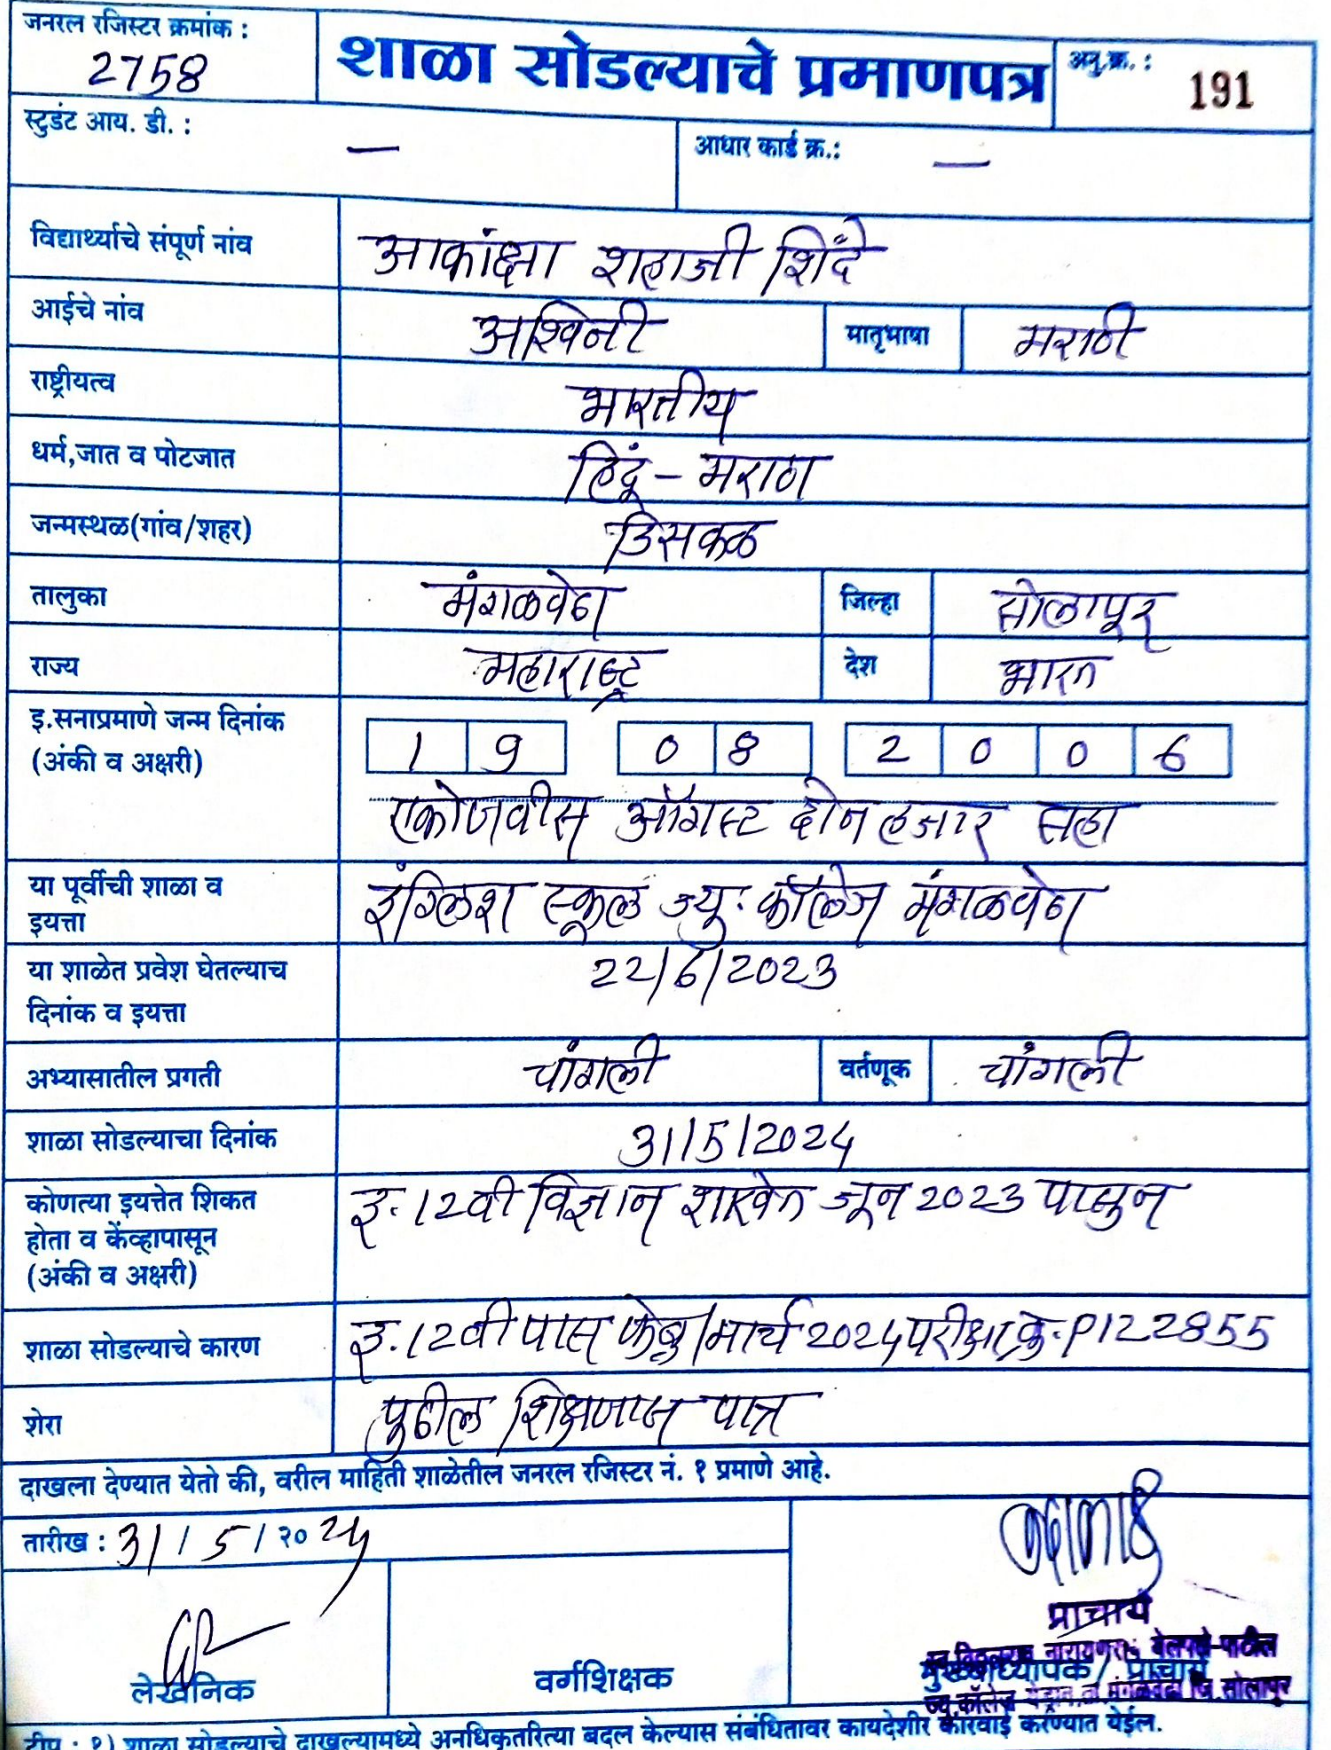 जनरल रजिस्टर क्रमांक :
2758
शाळा सोडल्याचे प्रमाणपत्र
अनु.क्र. :
191
स्टुडंट आय. डी. : —
आधार कार्ड क्र.: —
विद्यार्थ्याचे संपूर्ण नांव आकांक्षा शहाजी शिंदे
आईचे नांव अश्विनी मातृभाषा मराठी
राष्ट्रीयत्व भारतीय
धर्म,जात व पोटजात हिंदू - मराठा
जन्मस्थळ(गांव/शहर) डिसकळ
तालुका मंगळवेढा जिल्हा सोलापूर
राज्य महाराष्ट्र देश भारत
इ.सनाप्रमाणे जन्म दिनांक 19 08 2006
(अंकी व अक्षरी)
एकोणवीस ऑगस्ट दोन हजार सहा
या पूर्वीची शाळा व इंग्लिश स्कूल ज्यु. कॉलेज मंगळवेढा
इयत्ता
या शाळेत प्रवेश घेतल्याच 22/6/2023
दिनांक व इयत्ता
अभ्यासातील प्रगती चांगली वर्तणूक चांगली
शाळा सोडल्याचा दिनांक 31/5/2024
कोणत्या इयत्तेत शिकत इ. 12वी विज्ञान शाखेत जून 2023 पासुन
होता व केंव्हापासून
(अंकी व अक्षरी)
शाळा सोडल्याचे कारण इ. 12वी पास फेब्रु/मार्च 2024 परीक्षा क्र. P122855
शेरा पुढील शिक्षणास पात्र
दाखला देण्यात येतो की, वरील माहिती शाळेतील जनरल रजिस्टर नं. १ प्रमाणे आहे.
तारीख : 31 / 5 / २० 24
प्राचार्य
लेखनिक वर्गशिक्षक मुख्याध्यापक / प्राचार्य
ज्यु.कॉलेज ता मंगळवेढा जि सोलापूर
टीप : १) शाळा सोडल्याचे दाखल्यामध्ये अनधिकृतरित्या बदल केल्यास संबंधितावर कायदेशीर कारवाई करण्यात येईल.